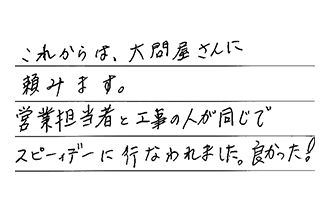 これからは、大問屋さんに
頼みます。
営業担当者と工事の人が同じで
スピーィデーに行なわれました。良かった!